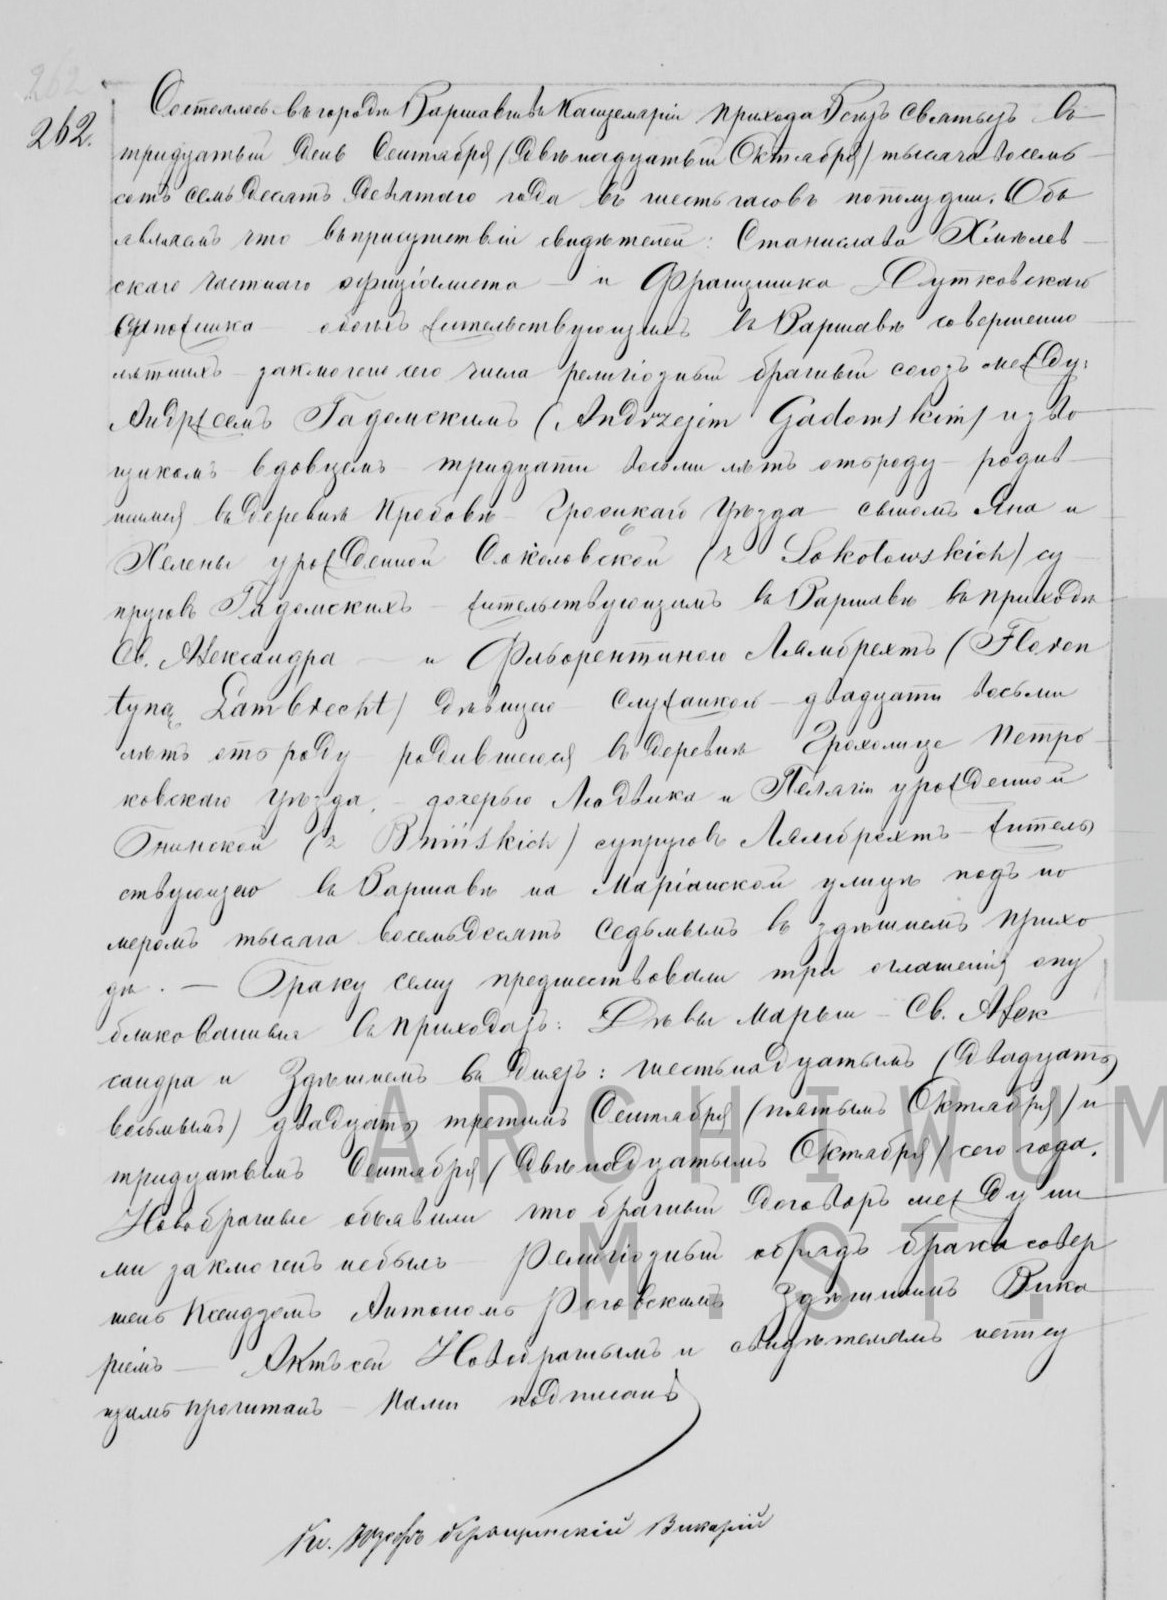 262
262.
Состоялось въ городѣ Варшавѣ въ Канцеляріи прихода Всѣхъ Святыхъ въ
тридцатый День Сентября (Двѣнадцатый Октября) тысяча восемь
сотъ семьдесятъ Девятаго года въ шесть часовъ пополудни. Объ
являемъ что въ присутствіи свидѣтелей: Станислава Хмѣлев
скаго частнаго оффиціалиста – и Францишка Дутковскаго
Сапожника обоихъ жительствующихъ въ Варшавѣ совершенно
лѣтнихъ – заключенъ сего числа религіозный брачный союзъ между:
Андржеемъ Гадомскимъ (Andrzejem Gadomskim) изво
щикомъ вдовцемъ тридцати восьми лѣтъ отъ роду родив
шимся въ деревнѣ Гроецкаго Уѣзда – сыномъ Яна и
Хелены урожденной Соколовской (z Sokołowskich) су
пруговъ Гадомскихъ – жительствующимъ въ Варшавѣ въ приходѣ
Св. Александра – и Фльорентиною Лямбрехтъ (Floren
tyną Lambrecht) дѣвицею – служанкой – двадцати восьми
лѣтъ отъ роду родившеюся въ деревнѣ Грохолице Петро
ковскаго Уѣзда. – дочерью Людвика и Пелягіи урожденной
Бнинской (z Bnińskich) супруговъ Лямбрехтъ – житель
ствующею въ Варшавѣ на Маріанской улицѣ подъ но
меромъ тысяча восемьдесятъ седьмымъ въ здѣшнемъ прихо
дѣ. – Браку сему предшествовали три оглашенія опу
бликованныя въ приходахъ: Дѣвы Марыи – Св. Алек
сандра и Здѣшнемъ въ Дняхъ: шестьнадцатымъ (Двадцать
восьмымъ) двадцать третимъ Сентября (пятымъ Октября) и
тридцатымъ Сентября (Двѣнадцатымъ Октября) сего года.
Новобрачные объявили что брачный Договоръ между ни
ми заключенъ небылъ – Религіозный обрядъ брака совер
шенъ Ксендзомъ Антономъ Роговскимъ Здѣшнимъ Вика
ріемъ – Актъ сей Новобрачнымъ и свидѣтелямъ непису
щимъ прочитанъ – Нами подписанъ
Кс. Юзефъ Викарій
ARCHIWUM
M. ST.